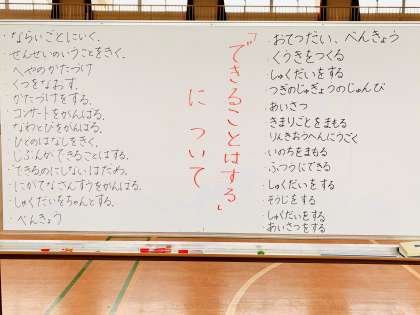 ・ならいごとにいく。
・せんせいのいうことをきく。
・へやのかたづけ
・くつをなおす。
・かたづけをする。
・コンサートをがんばる。
・なわとびをがんばる。
・ひとのはなしをきく。
・じぶんができることはする。
・できるのにしないはだめ。
・にがてなさんすうをがんばる。
・しゅくだいをちゃんとする。
・べんきょう
「できることはする」
について
・おてつだい、べんきょう
・くうきをつくる
・しゅくだいをする
・つぎのじゅぎょうのじゅんび
・あいさつ
・きまりごとをまもる
・りんきおうへんにうごく
・いのちをまもる
・ふつうにできる
・しゅくだいをする
・そうじをする
・しゅくだいをする
・あいさつをする